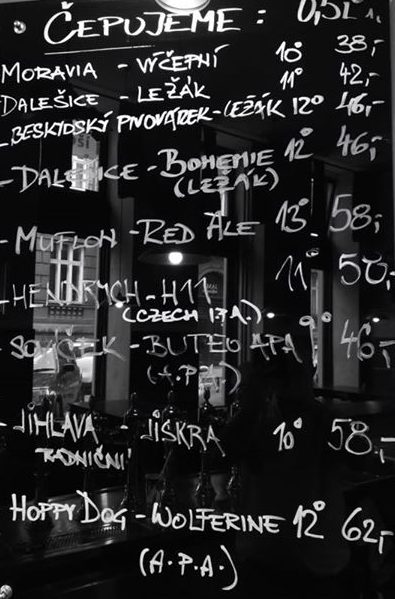 ČEPUJEME: 0,5L
MORAVIA - VÝČEPNÍ 10° 38,-
DALEŠICE - LEŽÁK 11° 42,-
-BESKYDSKÝ PIVOVÁREK-LEŽÁK 12° 46,-
-DALEŠICE-BOHEMIE 12° 46,-
(LEŽÁK)
-MUFLON-RED ALE 13° 58,-
-HENDRYCH-H11 11° 50,-
(CZECH IPA.)
-SOUČEK-BUTEO APA 9° 46,-
(A.P.A.)
-JIHLAVA - JISKRA 10° 58,-
RADNIČNÍ
HOPPY DOG-WOLFERINE 12° 62,-
(A.P.A.)